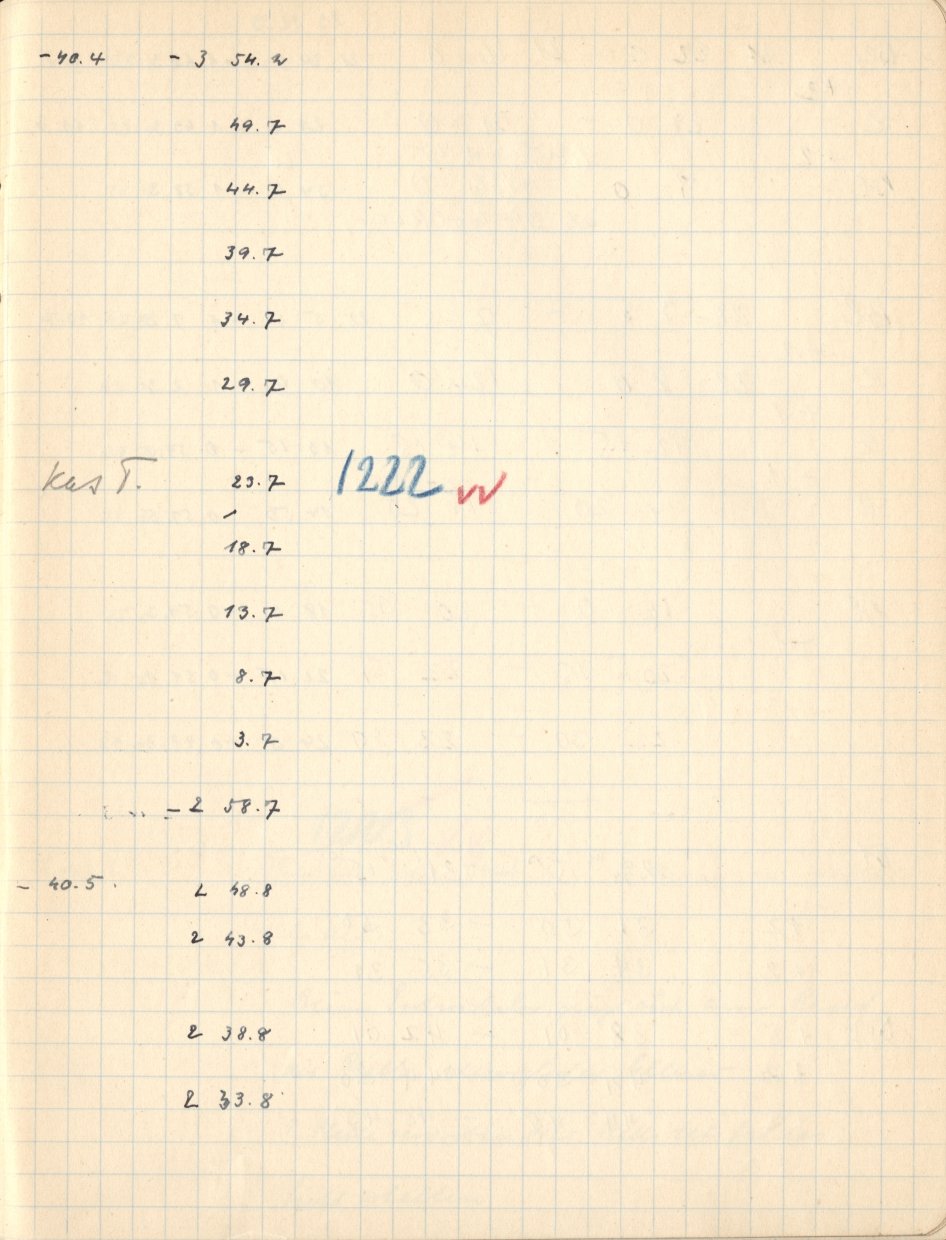 -40.4 - 3 54.2
49.7
44.7
39.7
34.7
29.7
Kas T. 23.7 1222 vv
18.7
13.7
8.7
3.7
- 2 58.7
- 40.5. 2 48.8
2 43.8
2 38.8
2 33.8